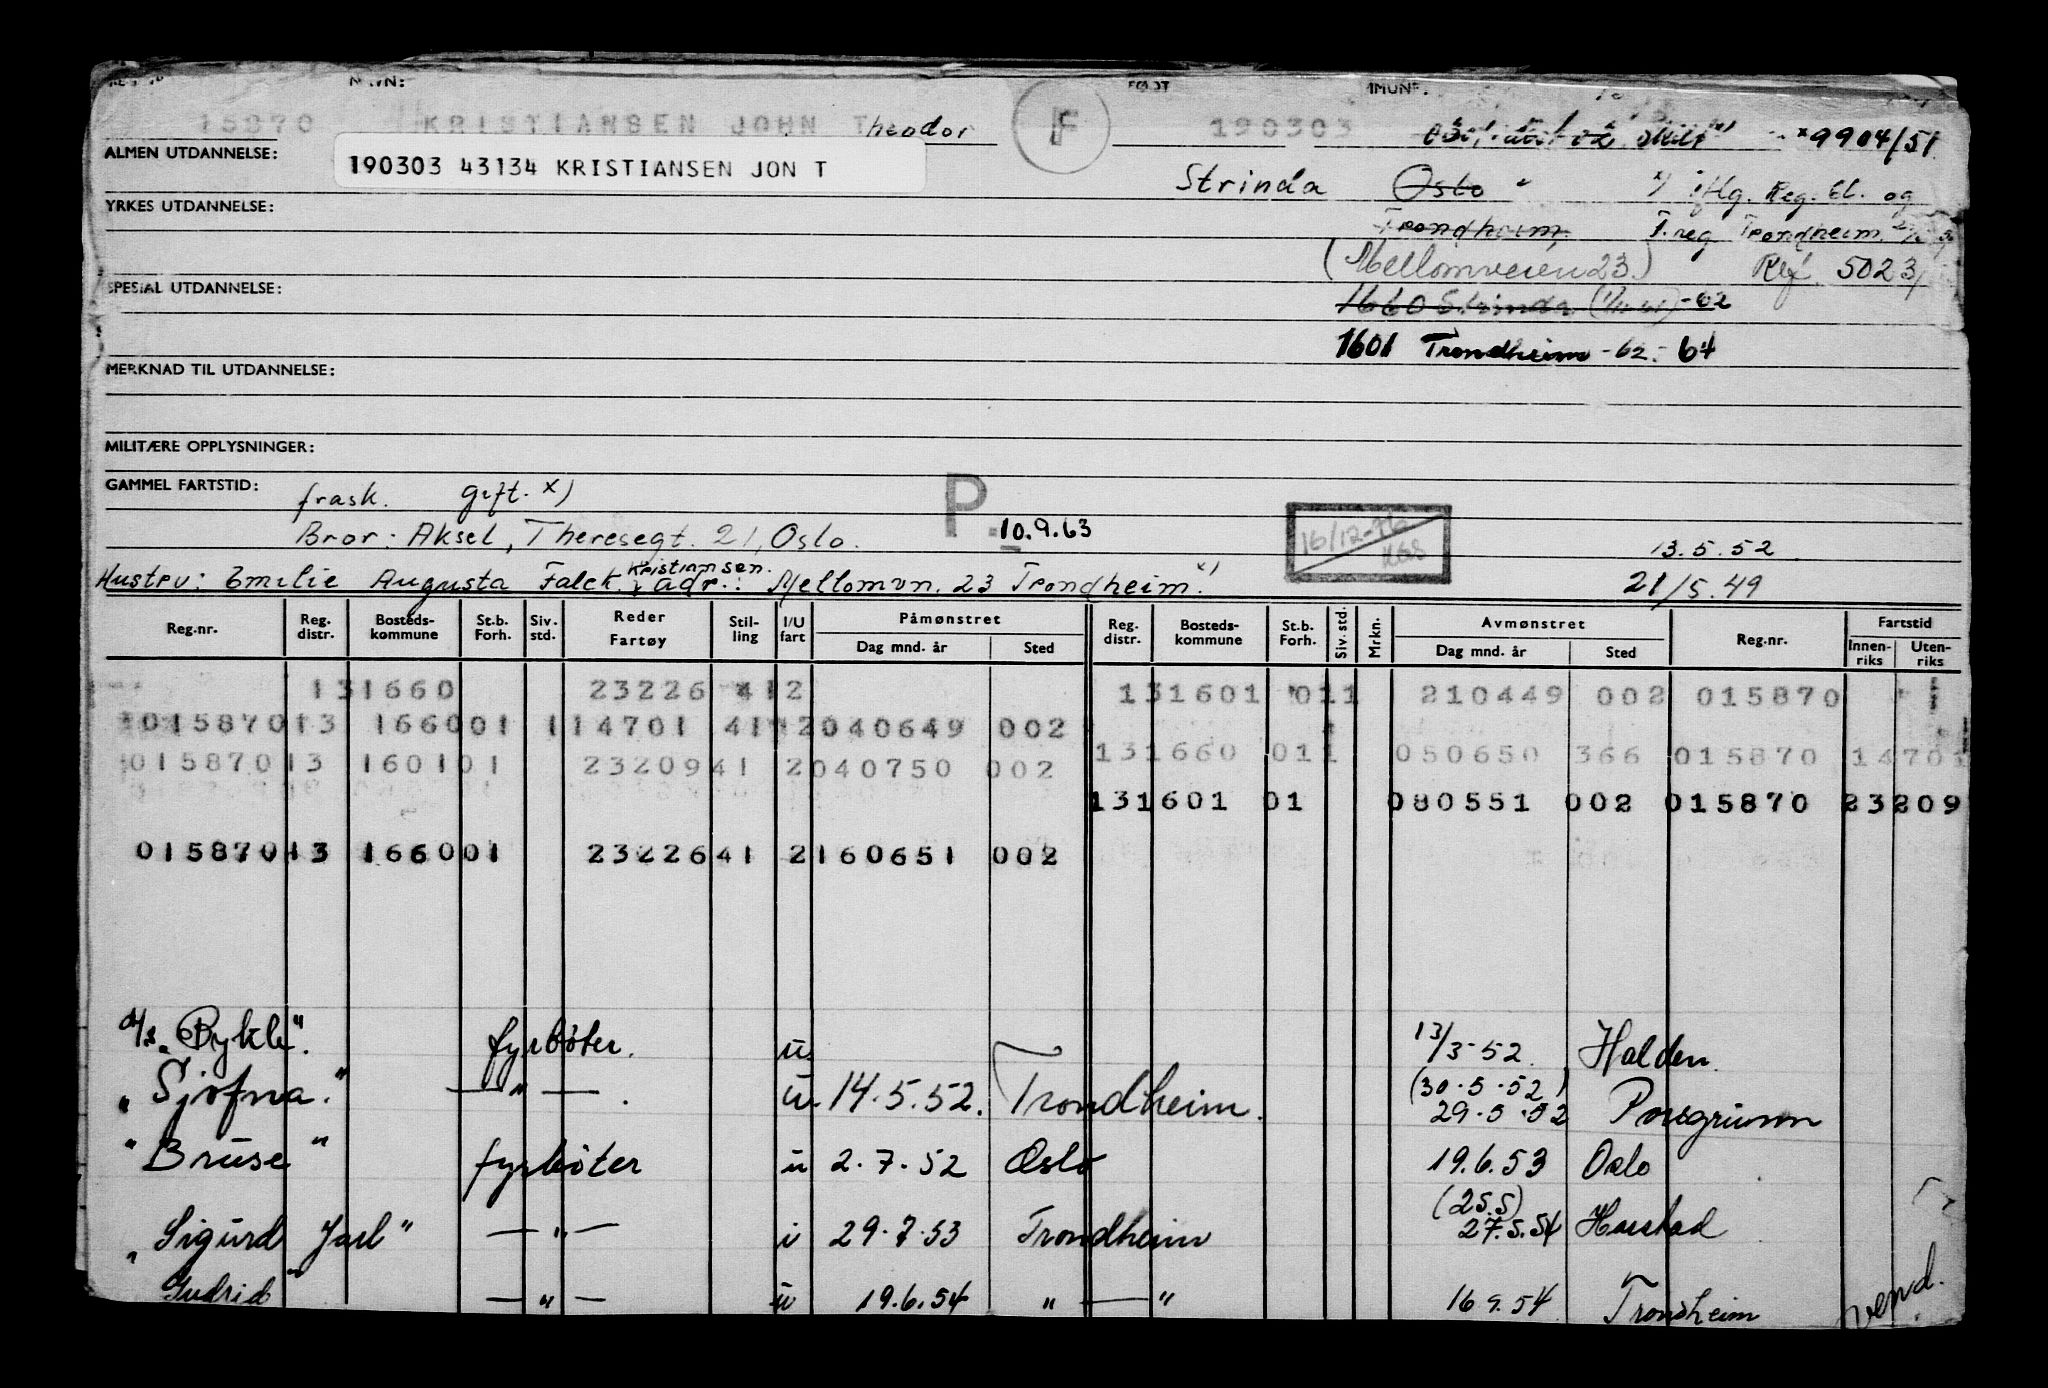 NAVN: FØDT
15870 KRISTIANSEN JOHN Theodor F 190303 9904/51
ALMEN UTDANNELSE:
190303 43134 KRISTIANSEN JON T
Strinda Oslo x) iflg. Reg. El. og
YRKES UTDANNELSE:
Trondheim, T.reg Trondheim
(Mellomveien 23.) Ref. 5023/
SPESIAL UTDANNELSE:
1660 Strinda -62
1601 Trondheim -62-64
MERKNAD TIL UTDANNELSE:
MILITÆRE OPPLYSNINGER:
GAMMEL FARTSTID: frask. gift. x) P.
Bror: Aksel, Theresegt. 21, Oslo. 10.9.63 16/12-76 13.5.52
Hustru: Emilie Augusta Falck Kristiansen. adr.: Mellomvn. 23 Trondheim. x) 21/5.49
Reg.nr. Reg. distr. Bosteds-kommune St.b. Forh. Siv. std. Reder Fartøy Stil-ling I/U fart Påmønstret Dag mnd. år Sted Reg. distr. Bosteds-kommune St.b. Forh. Siv. std. Mrkn. Avmønstret Dag mnd. år Sted Reg.nr. Fartstid Innen-riks Uten-riks
131660 23226 412 131601 011 210449 002 015870
01587013 166001 114701 41 2040649 002
131660 011 050650 366 015870 14701
01587013 160101 2320941 2040750 002
131601 01 080551 002 015870 23209
01587013 166001 2322641 2160651 002
d/s "Bykle". fyrbøter. u 13/5-52. Halden.
" Sjofna." — " — . u 14.5.52. Trondheim. (30.5.52) 29.5.52 Porsgrunn
" Bruse " fyrbøter u 2.7.52 Oslo 19.6.53 Oslo
" Sigurd Jarl" — " — i 29.7.53 Trondheim (25.5) 27.5.54 Harstad
Gudrid" — " — u 19.6.54 " — " 16 9.54 Trondheim
vend.